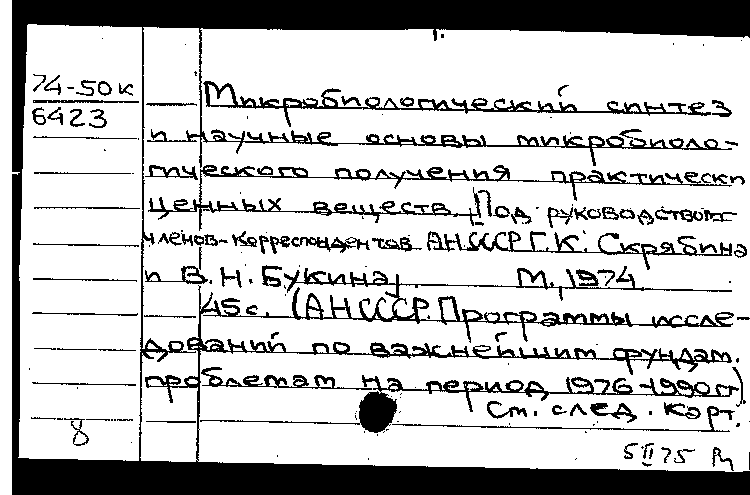 1.
74-50к
6423
Микробиологический синтез
и научные основы микробиоло-
гического получения практически
ценных веществ. [Под руководством
членов-корреспондентов АН СССР Г.К. Скрябина
и В.Н. Букина]. М., 1974.
45с. (АН СССР. Программы иссле-
дований по важнейшим фундам.
проблемам на период 1976-1990гг)
См. след. карт.
8
5 II 75